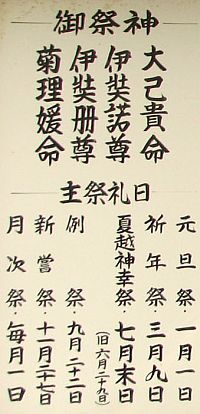 御祭神
大己貴命
伊奘諾尊
伊奘册尊
菊理媛命
主祭礼日
元旦祭・一月一日
祈年祭・三月九日
夏越神幸祭・七月末日
(旧六月二十九日)
例祭・九月二十二日
新嘗祭・十一月二十七日
月次祭・毎月一日